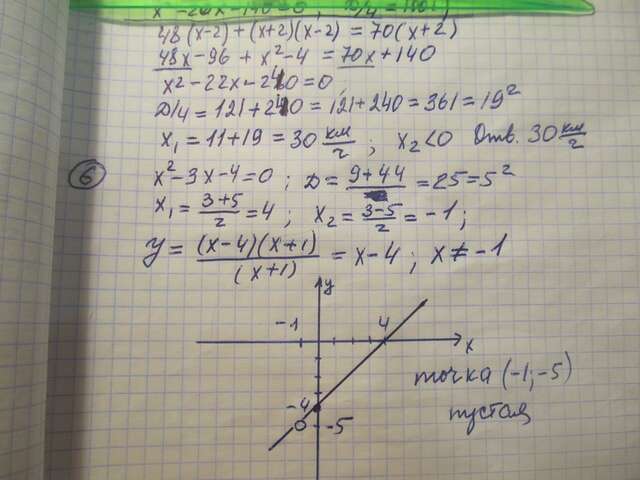 48(x-2) + (x+2)(x-2) = 70(x+2)
48x-96 + x²-4 = 70x+140
x² - 22x - 240 = 0
D/4 = 121+240 = 121+240 = 361 = 19²
x₁ = 11+19 = 30 км/ч ; x₂<0 Отв. 30 км/ч
6 x²-3x-4=0 ; D = 9+44 = 25 = 5²
x₁ = (3+5)/2 = 4 ; x₂ = (3-5)/2 = -1 ;
y = (x-4)(x+1)/(x+1) = x-4 ; x ≠ -1
y
-1 4
x
точка (-1;-5)
пустая
-4
-5